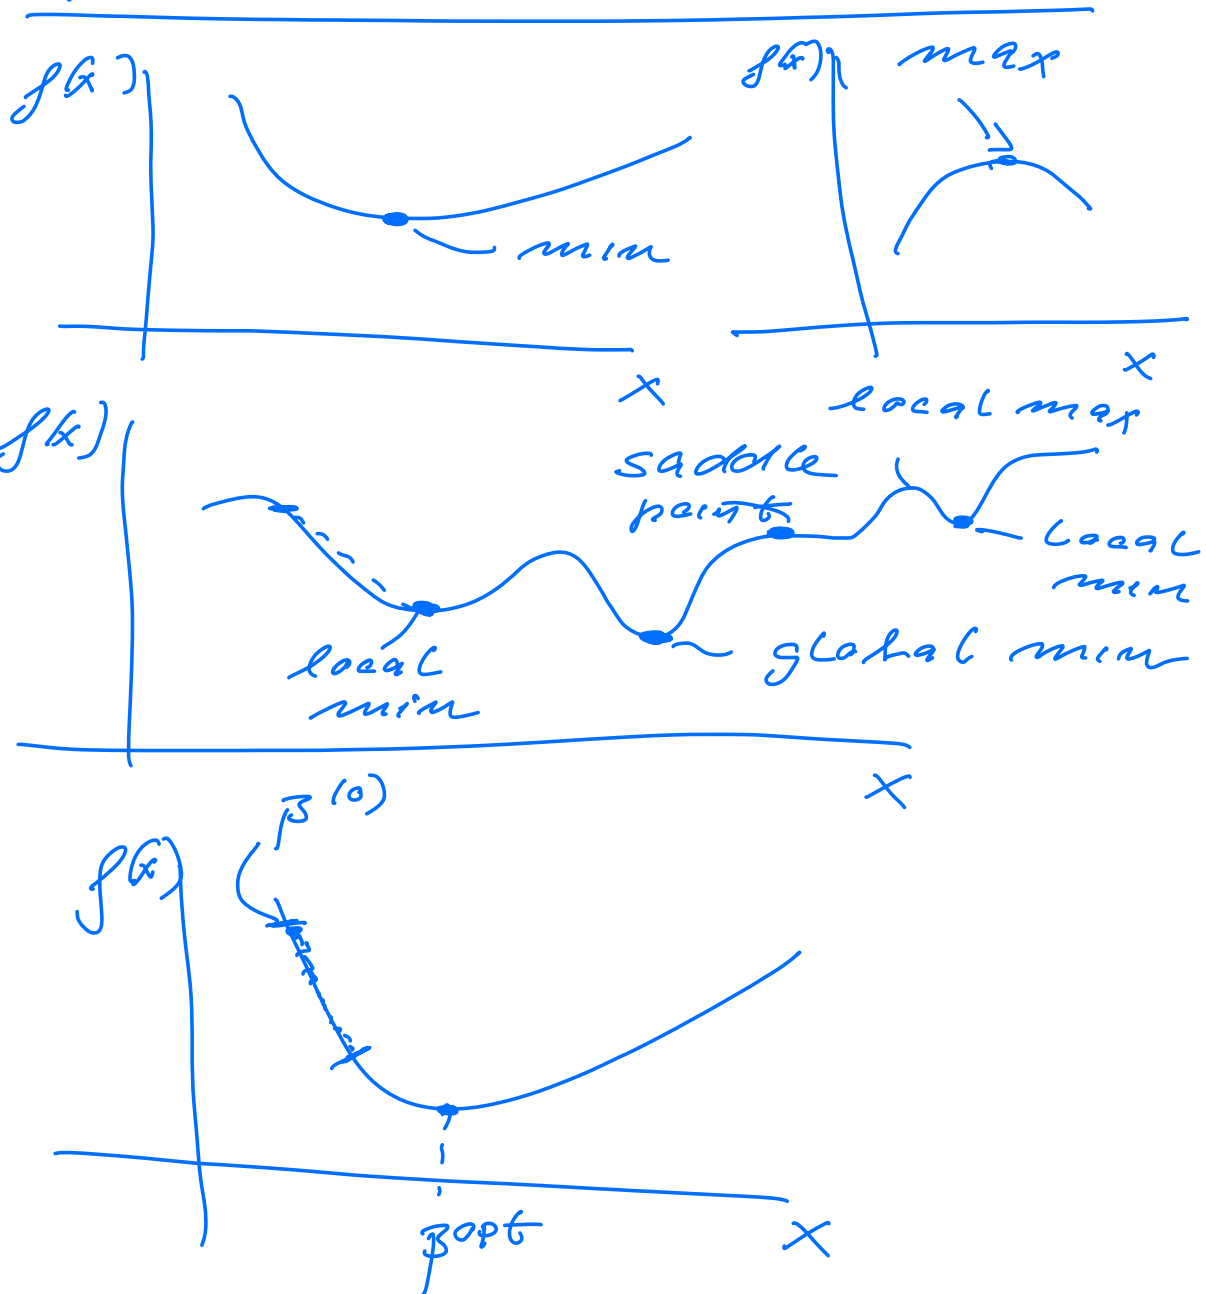 f(x)
min
x
f(x)
max
x
f(x)
local max
saddle
point
local
min
global min
local
min
x
β^(0)
f(x)
β^opt
x